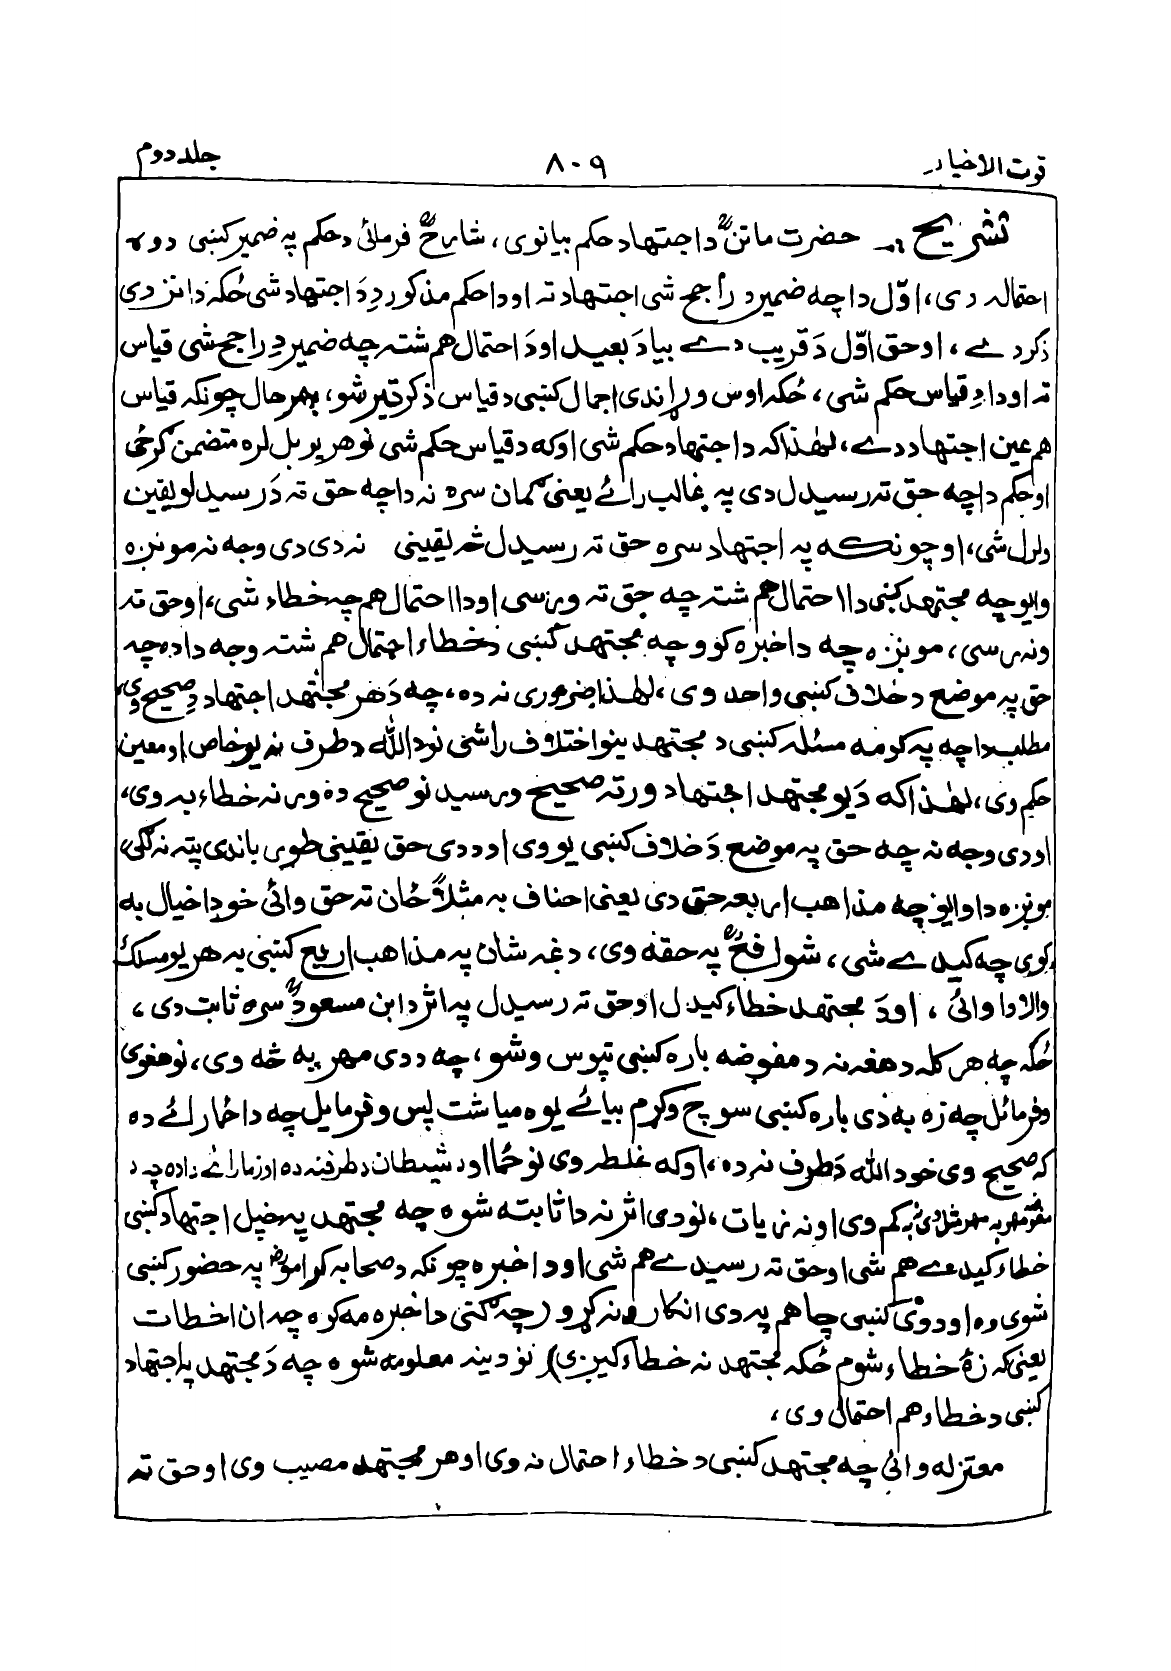 قوت الاخیار
۸۰۹
جلد دوم
تشریح :- حضرت ماتنؒ د اجتهاد حکم بیانوی، شارحؒ فرمائی د حکم په ضمیر کښی دوه
احتماله دی، اوّل دا چه ضمیر د راجح شی اجتهاد ته او دا حکم مذکور دِ دَ اجتهاد شی ځکه دا نزدی
ذکر دے، او حق اوّل دَ قریب دے بیا دَ بعید او دَ احتمال هم شته چه ضمیر دِ راجح شی قیاس
ته او دا دِ قیاس حکم شی، ځکه اوس وړاندی اجمال کښی د قیاس ذکر تیر شو، بهر حال چونکه قیاس
هم عین اجتهاد دے، لهٰذا که د اجتهاد حکم شی او که د قیاس حکم شی نو هر یو بل لره متضمن گرځی
او حکم دا چه حق ته رسیدل دی په غالب رائے یعنی گمان سره نه دا چه حق ته دَ رسیدلو یقین
ولرل شی، او چونکه په اجتهاد سره حق ته رسیدل څه یقینی نه دی دی وجه نه مونږه
وایو چه مجتهد کښی دا احتمال هم شته چه حق ته ورسی او دا احتمال هم چه خطاء شی، او حق ته
ونه رسی، مونږه چه دا خبره کوو چه مجتهد کښی دَ خطاء احتمال هم شته وجه دا ده چه
حق په موضع د خلاف کښی واحد وی، لهٰذا ضروری نه ده، چه دَ هر مجتهد اجتهاد دِ صحیح وی
مطلب دا چه په کومه مسئله کښی د مجتهدینو اختلاف راشی نو د الله د طرف نه یو خاص او معین
حکم وی، لهٰذا که دَ یو مجتهد اجتهاد ورته صحیح ورسید نو صحیح ده ورنه خطاء به وی،
او دی وجه نه چه حق په موضع دَ خلاف کښی یو وی او د دی حق یقینی طور باندی پته نه لگی
مونږه دا وایو چه مذاهب اربعه حق دی یعنی احناف به مثلاً ځان ته حق وائی خو دا خیال به
کوی چه کیدے شی، شوافعؒ په حقه وی، دغه شان په مذاهب اربع کښی به هر یو مسلک
والا دا وائی، او دَ مجتهد خطاء کیدل او حق ته رسیدل په اثر د ابن مسعودؓ سره ثابت دی،
ځکه چه هر کله د هغه نه د مفوضه باره کښی تپوس وشو، چه د دی مهر به څه وی، نو هغوی
وفرمائل چه زه به دَی باره کښی سوچ وکړم بیائے یوه میاشت پس وفرمایل چه دا ځما رائے ده
که صحیح وی خو د الله دَ طرف نه ده، او که غلط وی نو ځما او د شیطان د طرفنه ده او زما رائے دا ده چه د
به مهر مثل دی نه به کم وی او نه زیات، نو دی اثر نه دا ثابته شوه چه مجتهد په خپل اجتهاد کښی
خطاء کیدے هم شی او حق ته رسیدے هم شی او دا خبره چونکه د صحابه کرامو په حضور کښی
شوی وه او دوی کښی چا هم په دی انکار ونه کړو (چه گنی دا خبره مه کوه چه ان اخطات
یعنی که زۀ خطاء شوم ځکه مجتهد نه خطاء کیږی) نو د ینه معلومه شوه چه دَ مجتهد په اجتهاد
کښی د خطاء هم احتمال وی،
معتزله وائی چه مجتهد کښی د خطاء احتمال نه وی او هر مجتهد مصیب وی او حق ته